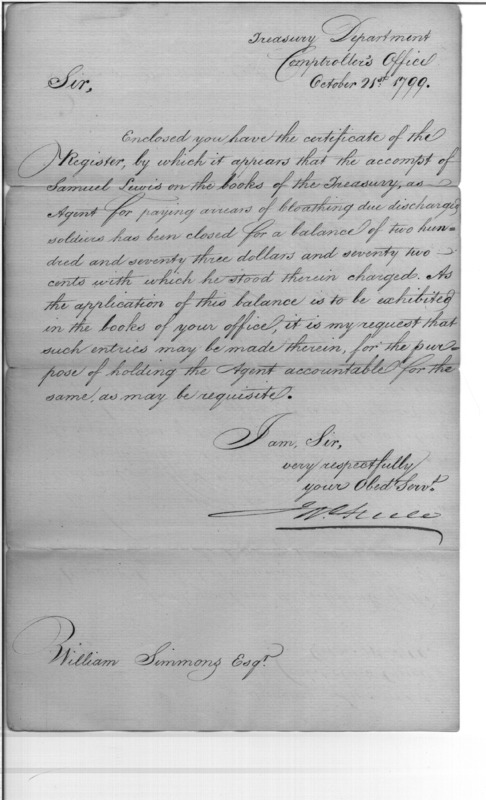 Treasury Department
Comptroller's Office
October 21st. 1799.
Sir,
Enclosed you have the certificate of the
Register, by which it appears that the accompt of
Samuel Lewis on the books of the Treasury, as
Agent for paying arrears of Cloathing due discharged
soldiers has been closed for a balance of two hun=
dred and seventy three dollars and seventy two
cents with which he stood therein charged. As
the application of this balance is to be exhibited
in the books of your office, it is my request that
such entries may be made therein, for the pur=
pose of holding the Agent accountable for the
same, as may be requisite.
I am, Sir,
very respectfully
your Obedt. Servt.
Jno. Steele
William Simmons Esqr.